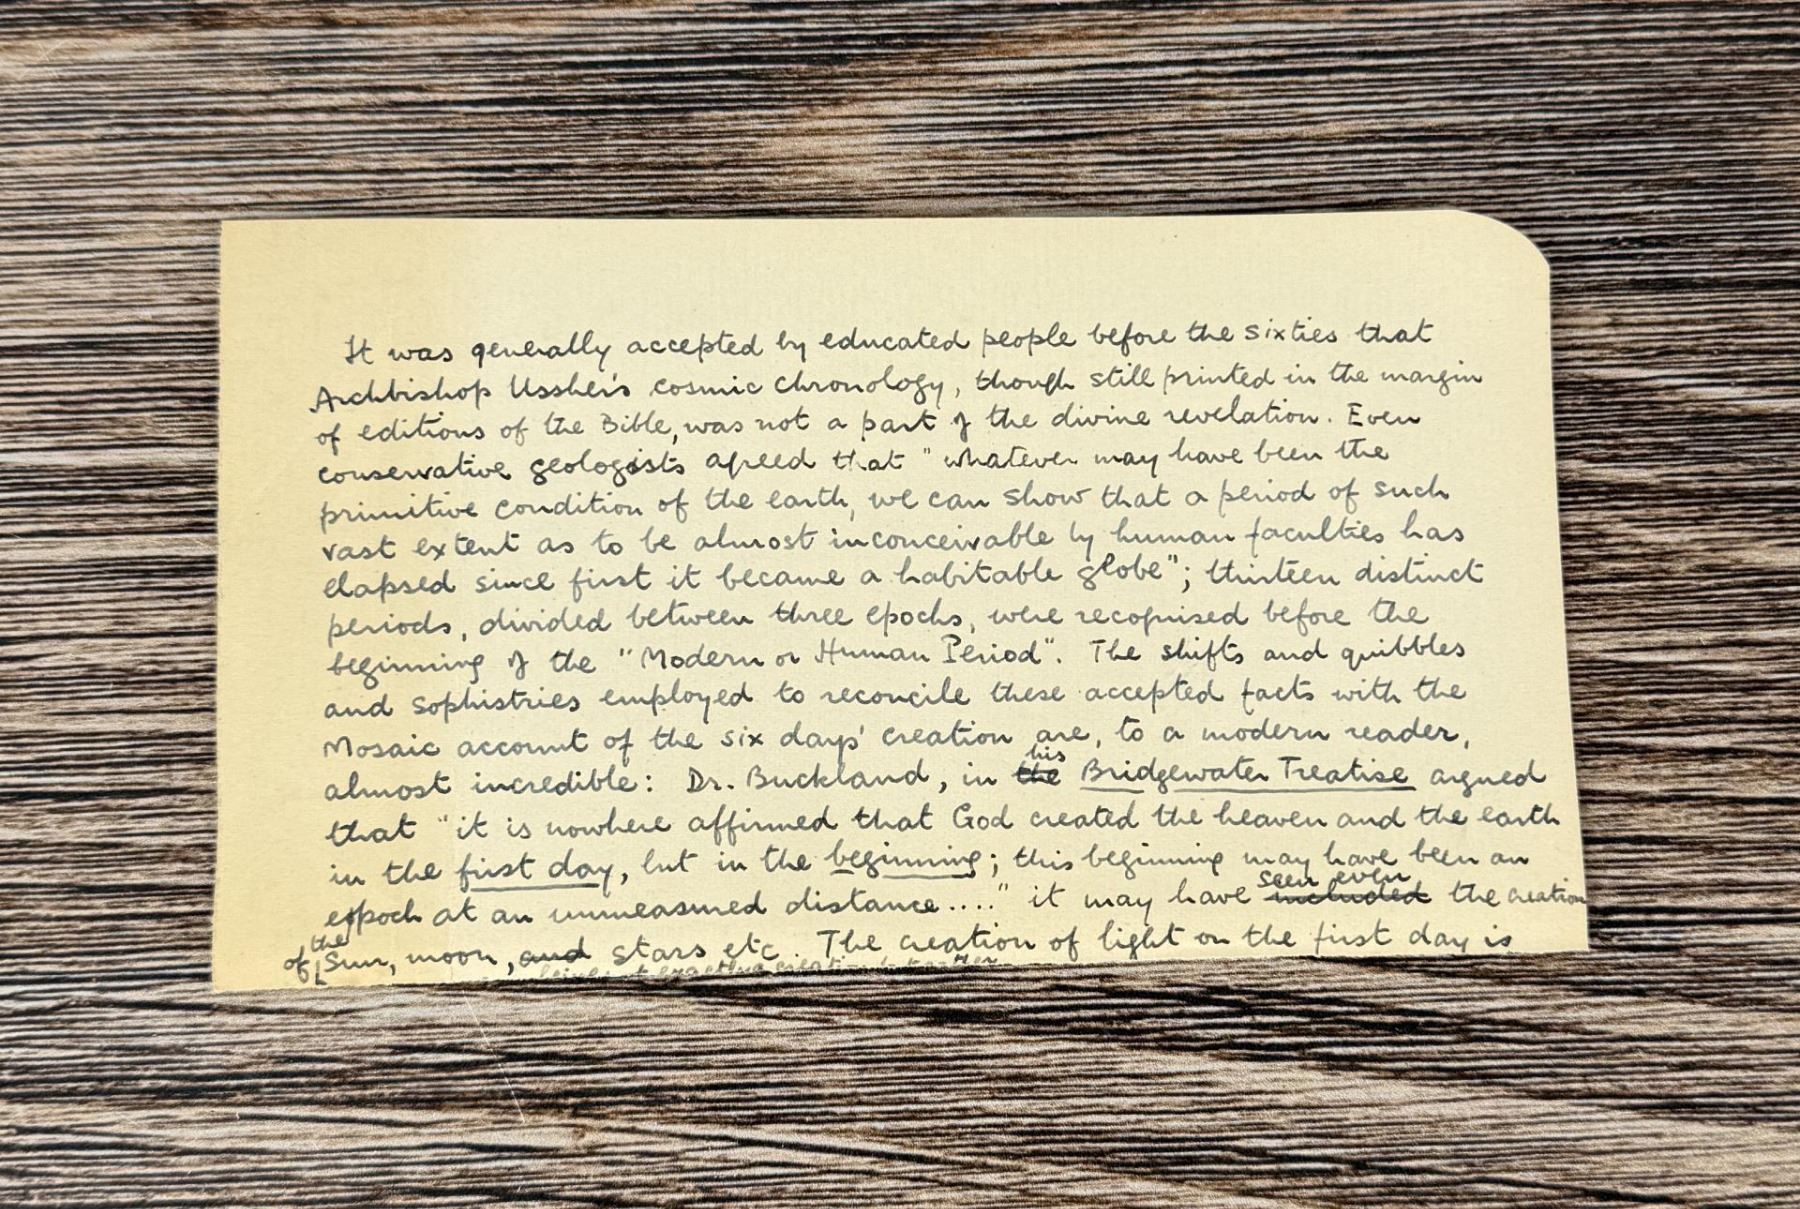 It was generally accepted by educated people before the sixties that
Archbishop Ussher's cosmic chronology, though still printed in the margin
of editions of the Bible, was not a part of the divine revelation. Even
conservative geologists agreed that "whatever may have been the
primitive condition of the earth, we can show that a period of such
vast extent as to be almost inconceivable by human faculties has
elapsed since first it became a habitable globe"; thirteen distinct
periods, divided between three epochs, were recognised before the
beginning of the "Modern or Human Period". The shifts and quibbles
and sophistries employed to reconcile these accepted facts with the
Mosaic account of the six days' creation are, to a modern reader,
his
almost incredible: Dr. Buckland, in the Bridgewater Treatise argued
that "it is nowhere affirmed that God created the heaven and the earth
in the first day, but in the beginning; this beginning may have been an
seen even
epoch at an unmeasured distance...." it may have included the creation
the
of Sun, moon, and stars etc. The creation of light on the first day is
creation but rather